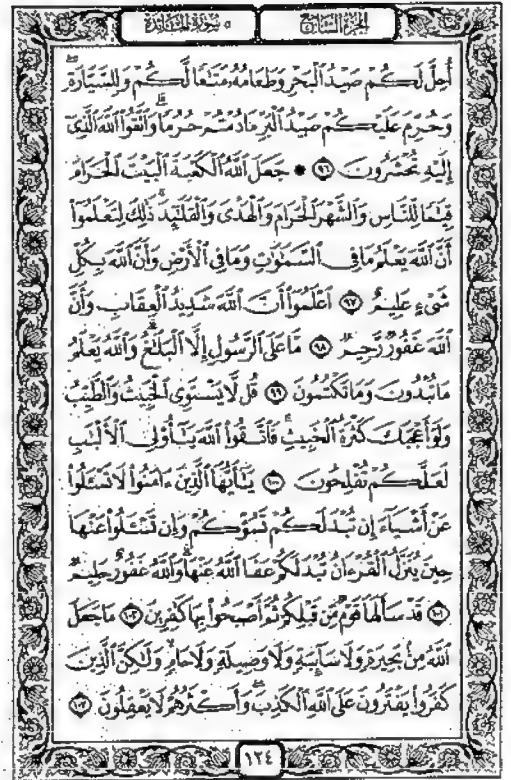 الجزء السابع
سورة المائدة
أُحِلَّ لَكُمْ صَيْدُ ٱلْبَحْرِ وَطَعَامُهُۥ مَتَٰعًا لَّكُمْ وَلِلسَّيَّارَةِ ۖ
وَحُرِّمَ عَلَيْكُمْ صَيْدُ ٱلْبَرِّ مَا دُمْتُمْ حُرُمًا ۗ وَٱتَّقُوا۟ ٱللَّهَ ٱلَّذِىٓ
إِلَيْهِ تُحْشَرُونَ ٩٦ ۞ جَعَلَ ٱللَّهُ ٱلْكَعْبَةَ ٱلْبَيْتَ ٱلْحَرَامَ
قِيَٰمًا لِّلنَّاسِ وَٱلشَّهْرَ ٱلْحَرَامَ وَٱلْهَدْىَ وَٱلْقَلَٰٓئِدَ ۚ ذَٰلِكَ لِتَعْلَمُوٓا۟
أَنَّ ٱللَّهَ يَعْلَمُ مَا فِى ٱلسَّمَٰوَٰتِ وَمَا فِى ٱلْأَرْضِ وَأَنَّ ٱللَّهَ بِكُلِّ
شَىْءٍ عَلِيمٌ ٩٧ ٱعْلَمُوٓا۟ أَنَّ ٱللَّهَ شَدِيدُ ٱلْعِقَابِ وَأَنَّ
ٱللَّهَ غَفُورٌ رَّحِيمٌ ٩٨ مَّا عَلَى ٱلرَّسُولِ إِلَّا ٱلْبَلَٰغُ ۗ وَٱللَّهُ يَعْلَمُ
مَا تُبْدُونَ وَمَا تَكْتُمُونَ ٩٩ قُل لَّا يَسْتَوِى ٱلْخَبِيثُ وَٱلطَّيِّبُ
وَلَوْ أَعْجَبَكَ كَثْرَةُ ٱلْخَبِيثِ ۚ فَٱتَّقُوا۟ ٱللَّهَ يَٰٓأُو۟لِى ٱلْأَلْبَٰبِ
لَعَلَّكُمْ تُفْلِحُونَ ١٠٠ يَٰٓأَيُّهَا ٱلَّذِينَ ءَامَنُوا۟ لَا تَسْـَٔلُوا۟
عَنْ أَشْيَآءَ إِن تُبْدَ لَكُمْ تَسُؤْكُمْ وَإِن تَسْـَٔلُوا۟ عَنْهَا
حِينَ يُنَزَّلُ ٱلْقُرْءَانُ تُبْدَ لَكُمْ عَفَا ٱللَّهُ عَنْهَا ۗ وَٱللَّهُ غَفُورٌ حَلِيمٌ
١٠١ قَدْ سَأَلَهَا قَوْمٌ مِّن قَبْلِكُمْ ثُمَّ أَصْبَحُوا۟ بِهَا كَٰفِرِينَ ١٠٢ مَا جَعَلَ
ٱللَّهُ مِنۢ بَحِيرَةٍ وَلَا سَآئِبَةٍ وَلَا وَصِيلَةٍ وَلَا حَامٍ ۙ وَلَٰكِنَّ ٱلَّذِينَ
كَفَرُوا۟ يَفْتَرُونَ عَلَى ٱللَّهِ ٱلْكَذِبَ ۖ وَأَكْثَرُهُمْ لَا يَعْقِلُونَ ١٠٣
١٢٤